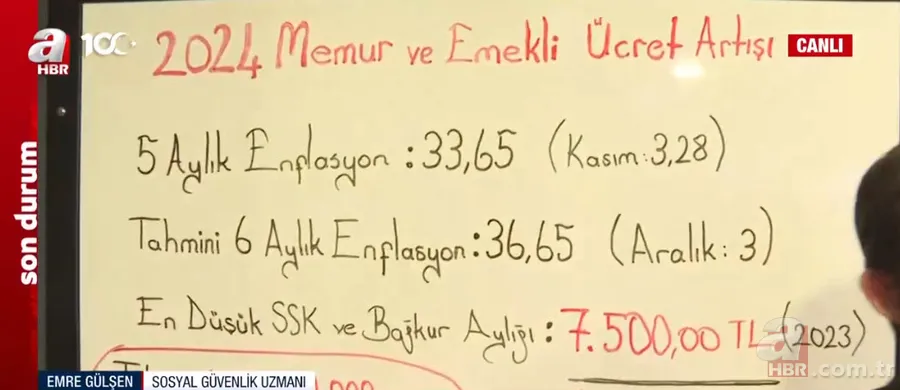 a
HBR
100
2024 Memur ve Emekli Ücret Artışı
CANLI
5 Aylık Enflasyon : 33,65 (Kasım: 3,28)
Tahmini 6 Aylık Enflasyon : 36,65 (Aralık: 3)
En Düşük SSK ve Bağkur Aylığı : 7.500,00 TL (2023)
son durum
EMRE GÜLŞEN SOSYAL GÜVENLİK UZMANI
a
HBR.com.tr